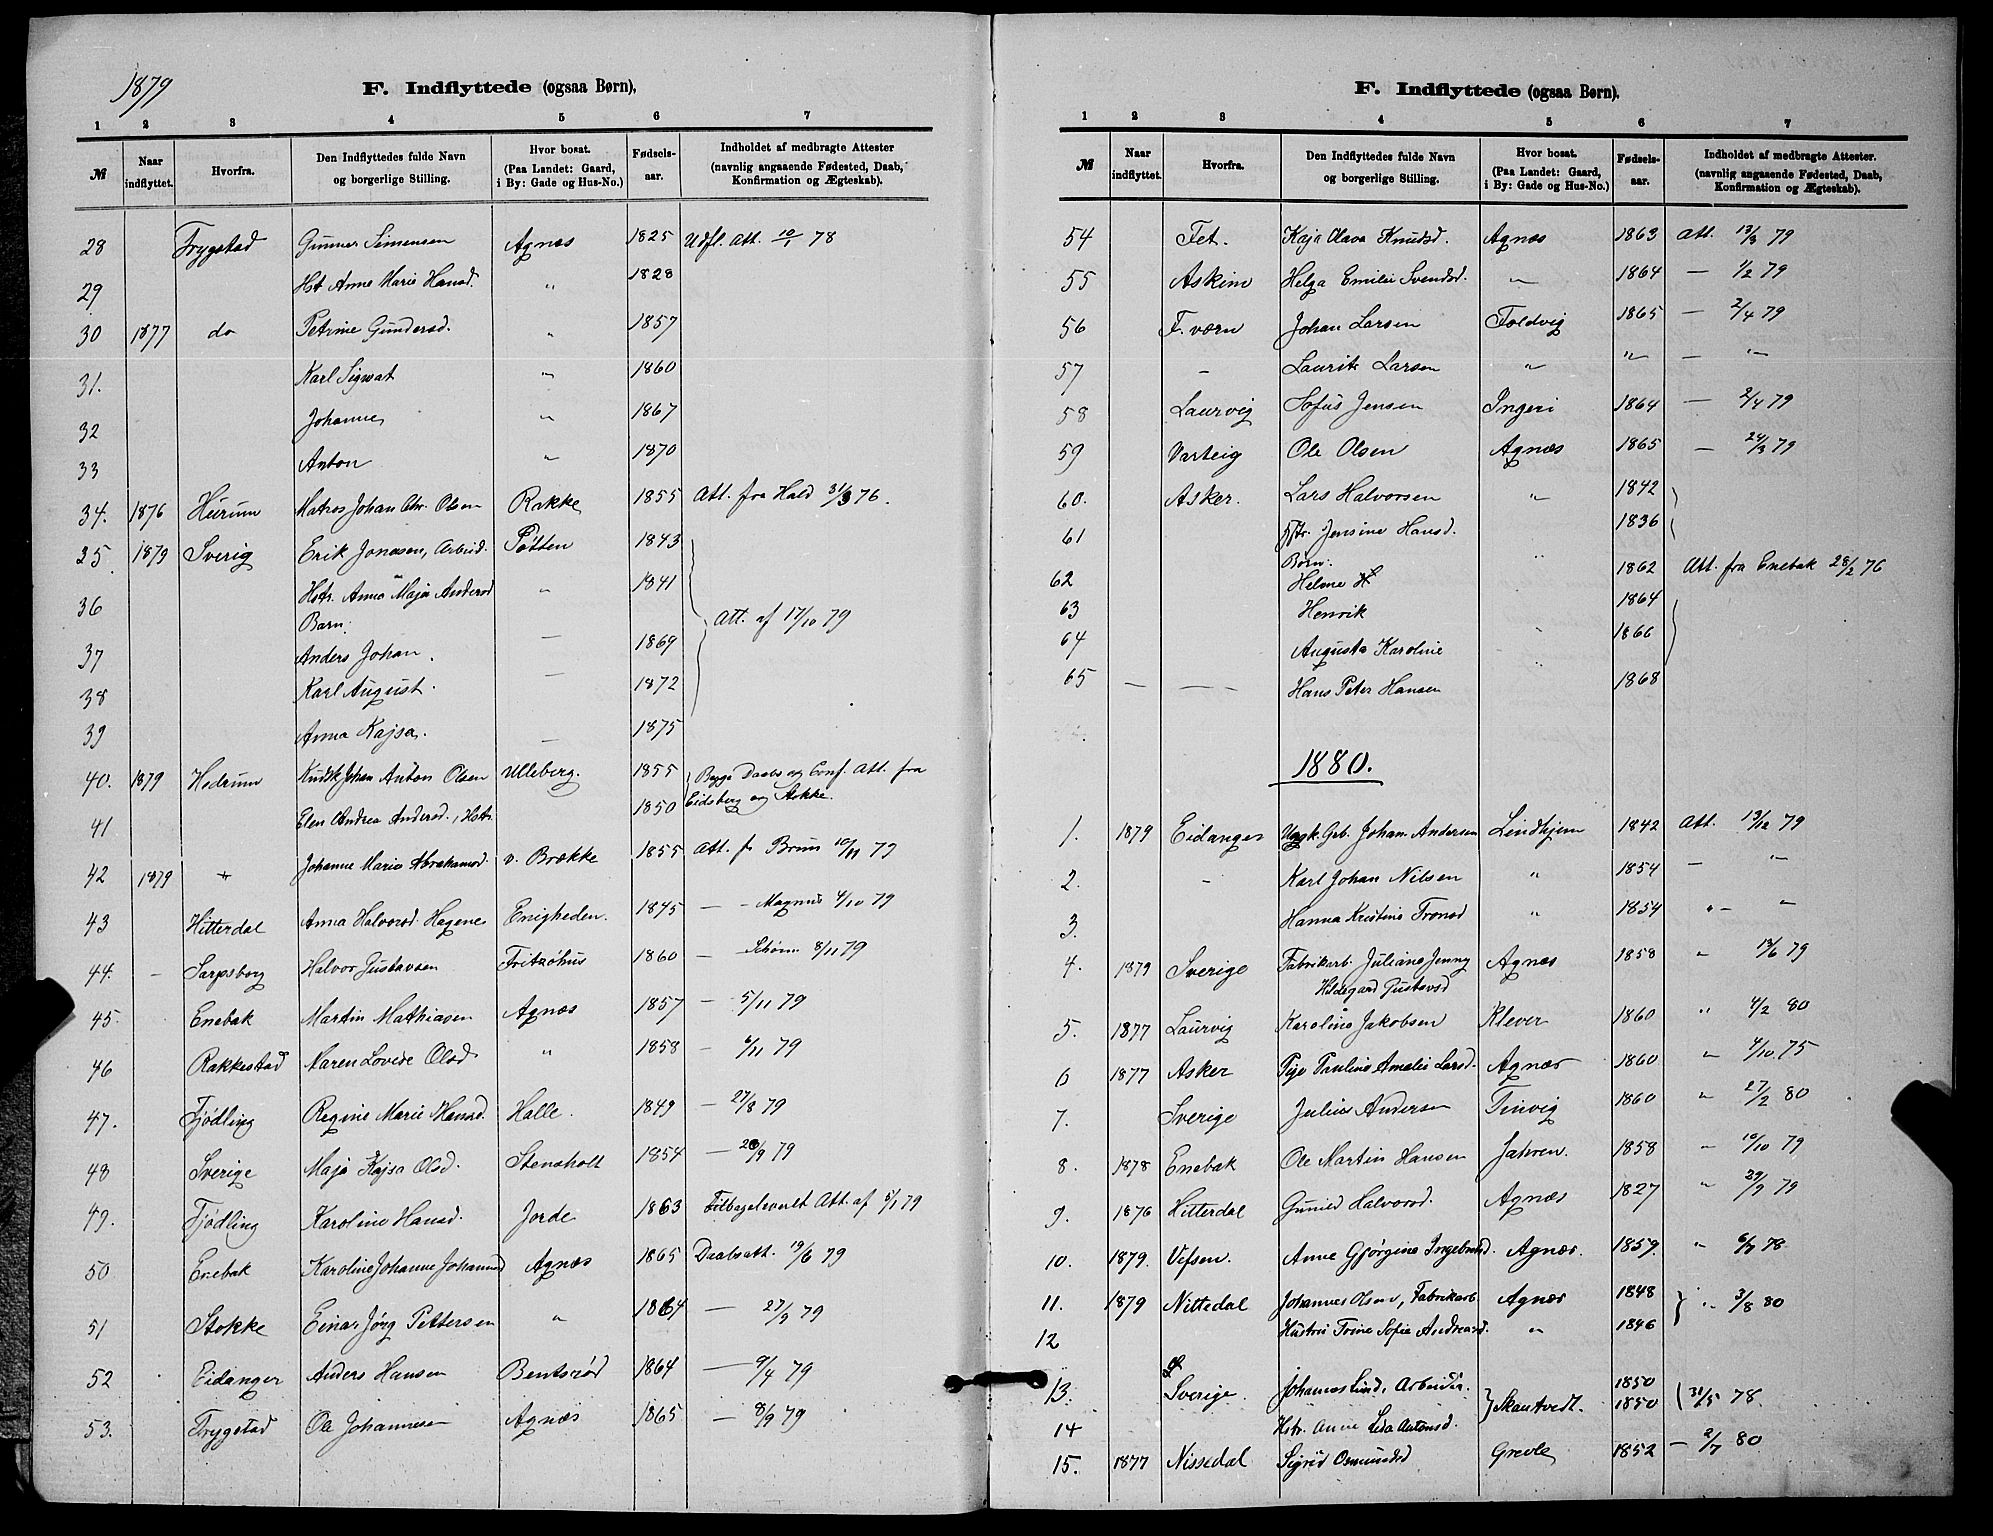 1879
F. Indflyttede (ogsaa Børn),
1 2 3 4 5 6 7
№ Naar indflyttet. Hvorfra. Den Indflyttedes fulde Navn og borgerlige Stilling. Hvor bosat. (Paa Landet: Gaard, i By: Gade og Hus-No.) Fødsels-aar. Indholdet af medbragte Attester (navnlig angaaende Fødested, Daab, Konfirmation og Ægteskab).
28 Trygstad Gunner Simensen Agnæs 1825 Udfl. Att. 10/1 78
29 Hst Anne Marie Hansd. " 1828
30 1877 do Petrine Gundersd. " 1857
31. Karl Sigwat " 1860
32 Johanne " 1867
33 Anton " 1870
34. 1876 Hurum Matros Johan Chr. Olsen Rakke 1855 Att. fra Hald 31/3 76.
35 1879 Sverig Erik Jonasen, Arbeid. Pøtten 1843
36 Hstr. Anna Maja Andersd " 1841
Børn: Att. af 17/10 79
37 Anders Johan. — 1869
38 Karl August. — 1872
39 Anna Kajsa. — 1875
40. 1879 Hedrum Kudsk Johan Anton Olsen Ulleberg. 1855 Begge Daabs og Conf. Att. fra
41 Elen Andrea Andersd., Hstr. 1850 Eidsberg og Stokke.
42 1879 Johanne Marie Abrahamsd. v. Brække 1855 Att. fr Bruun 10/11 79
43 Hitterdal Anna Halvorsd. Hagene Enigheden. 1845 — - Magnus 4/10 79
44. - Sarpsborg Halvor Gustavsen Fritzøhus 1860 — 8/11 79
45. Enebak Martin Mathiasen Agnæs 1857 — 5/11 79
46 Rakkestad Maren Lovise Olsd " 1858 — 6/11 79
47. Tjødling Regine Marie Hansd. Halle. 1849 — 27/8 79
48 Sverige Maja Kajsa Olsd. Stensholt 1854 — 20/9 79
49. Tjødling Karoline Hansd. Jorde 1863 Tilbageleveret Att. af 5/1 79
50 Enebak Karoline Johanne Johansd Agnæs 1865 Daabsatt. 19/6 79
51 Stokke Einar Jørg Pettersen " 1864 — 27/9 79
52 Eidanger Anders Hansen Bentsrød 1864 — 9/4 79
53. Trygstad Ole Johannesen Agnæs 1865 — 8/9 79
F. Indflyttede (ogsaa Børn).
1 2 3 4 5 6 7
№ Naar indflyttet. Hvorfra. Den Indflyttedes fulde Navn og borgerlige Stilling. Hvor bosat. (Paa Landet: Gaard, i By: Gade og Hus-No.) Fødsels-aar. Indholdet af medbragte Attester. (navnlig angaaende Fødested, Daab, Konfirmation og Ægteskab).
54 Fet. Kaja Olava Knudsd. Agnæs 1863 Att. 13/3 79
55 Askim Helga Emilie Svendsd. " 1864 — 1/2 79
56 F. værn Johan Larsen Foldvig 1865 — 2/4 79
57 - Laurits Larsen " " — "
58 Laurvig Sofus Jensen Ingeri 1864 — 2/4 79
59 Varteig Ole Olsen Agnæs 1865 — 24/3 79
60. Asker. Lars Halvorsen " 1842
61 Hstr. Jensine Hansd. 1836
Børn:
62 Helene " 1862 Att. fra Enebak 28/2 76
63 Henrik 1864
64 Augusta Karoline " 1866
65 — — — Hans Peter Hansen " 1868
1880.
1. 1879 Eidanger Ungk. Grb. Johan Andersen Lindhjem 1842 Att. 13/12 79
2. - Karl Johan Nilsen " 1854 — "
3. Hanna Kristine Tronsd " 1854 " - "
4. 1879 Sverige Fabrikarb. Juliane Jenny Agnæs 1858 " 13/6 79
Hildegard Gustavsd
5. 1877 Laurvig Karoline Jakobsen Klever 1860 " 4/2 80
6 1877 Asker Pige Pauline Amalie Larsd. Agnæs 1860 " 4/10. 75
7. Sverige Julius Andersen Tinvig 1860 " 27/2 80
8. 1878 Enebak Ole Martin Hansen Jahren. 1858 " 10/10 79
9. 1876 Hitterdal Gunild Halvorsd. Agnæs 1827 " 29/9 79
10. 1879. Vefsen. Anne Gjørgine Ingebrisd. Agnæs. 1859. " 6/7 78
11. 1879 Nittedal Johannes Olsen, Fabrikarb. Agnæs 1848 " 3/8 80
12 Hustru Trine Sofie Andreasd. " 1846
13. Sverige. Johannes Lind, Arbeider. Skautvedt. 1850 31/5 78.
14 Hstr. Anne Lisa Antonsd. 1850
15. 1877 Nissedal Sigrid Osmundsd Grevle 1852 — 2/7 80